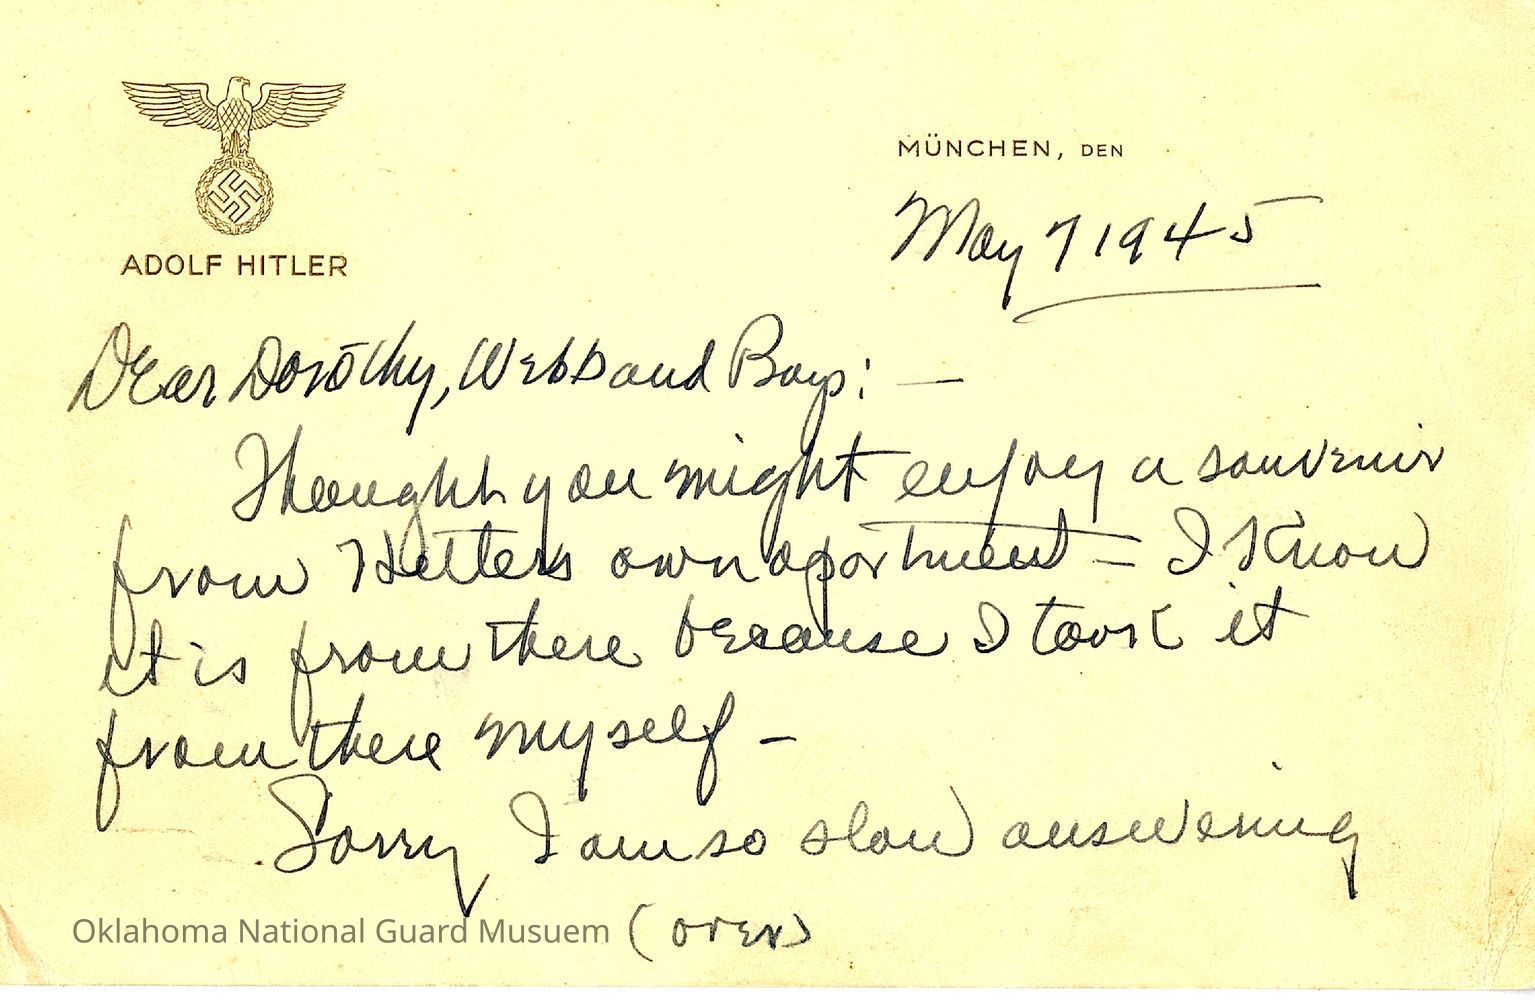 ADOLF HITLER
MÜNCHEN, DEN
May 7 1945
Dear Dorothy, Webb and Boys: —
Thought you might enjoy a souvenir
from Hitlers own apartment — I Know
it is from there because I took it
from there myself —
Sorry I am so slow answering
(over)
Oklahoma National Guard Musuem